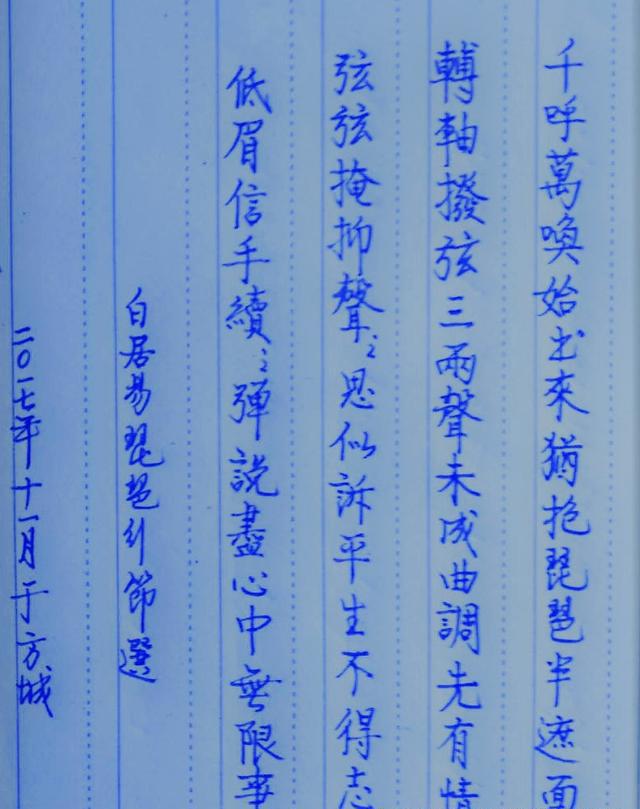 千呼萬喚始出來猶抱琵琶半遮面
轉軸撥弦三兩聲未成曲調先有情
弦弦掩抑聲〻思似訴平生不得志
低眉信手續〻彈說盡心中無限事
白居易琵琶引節選
二〇一七年十一月于方城